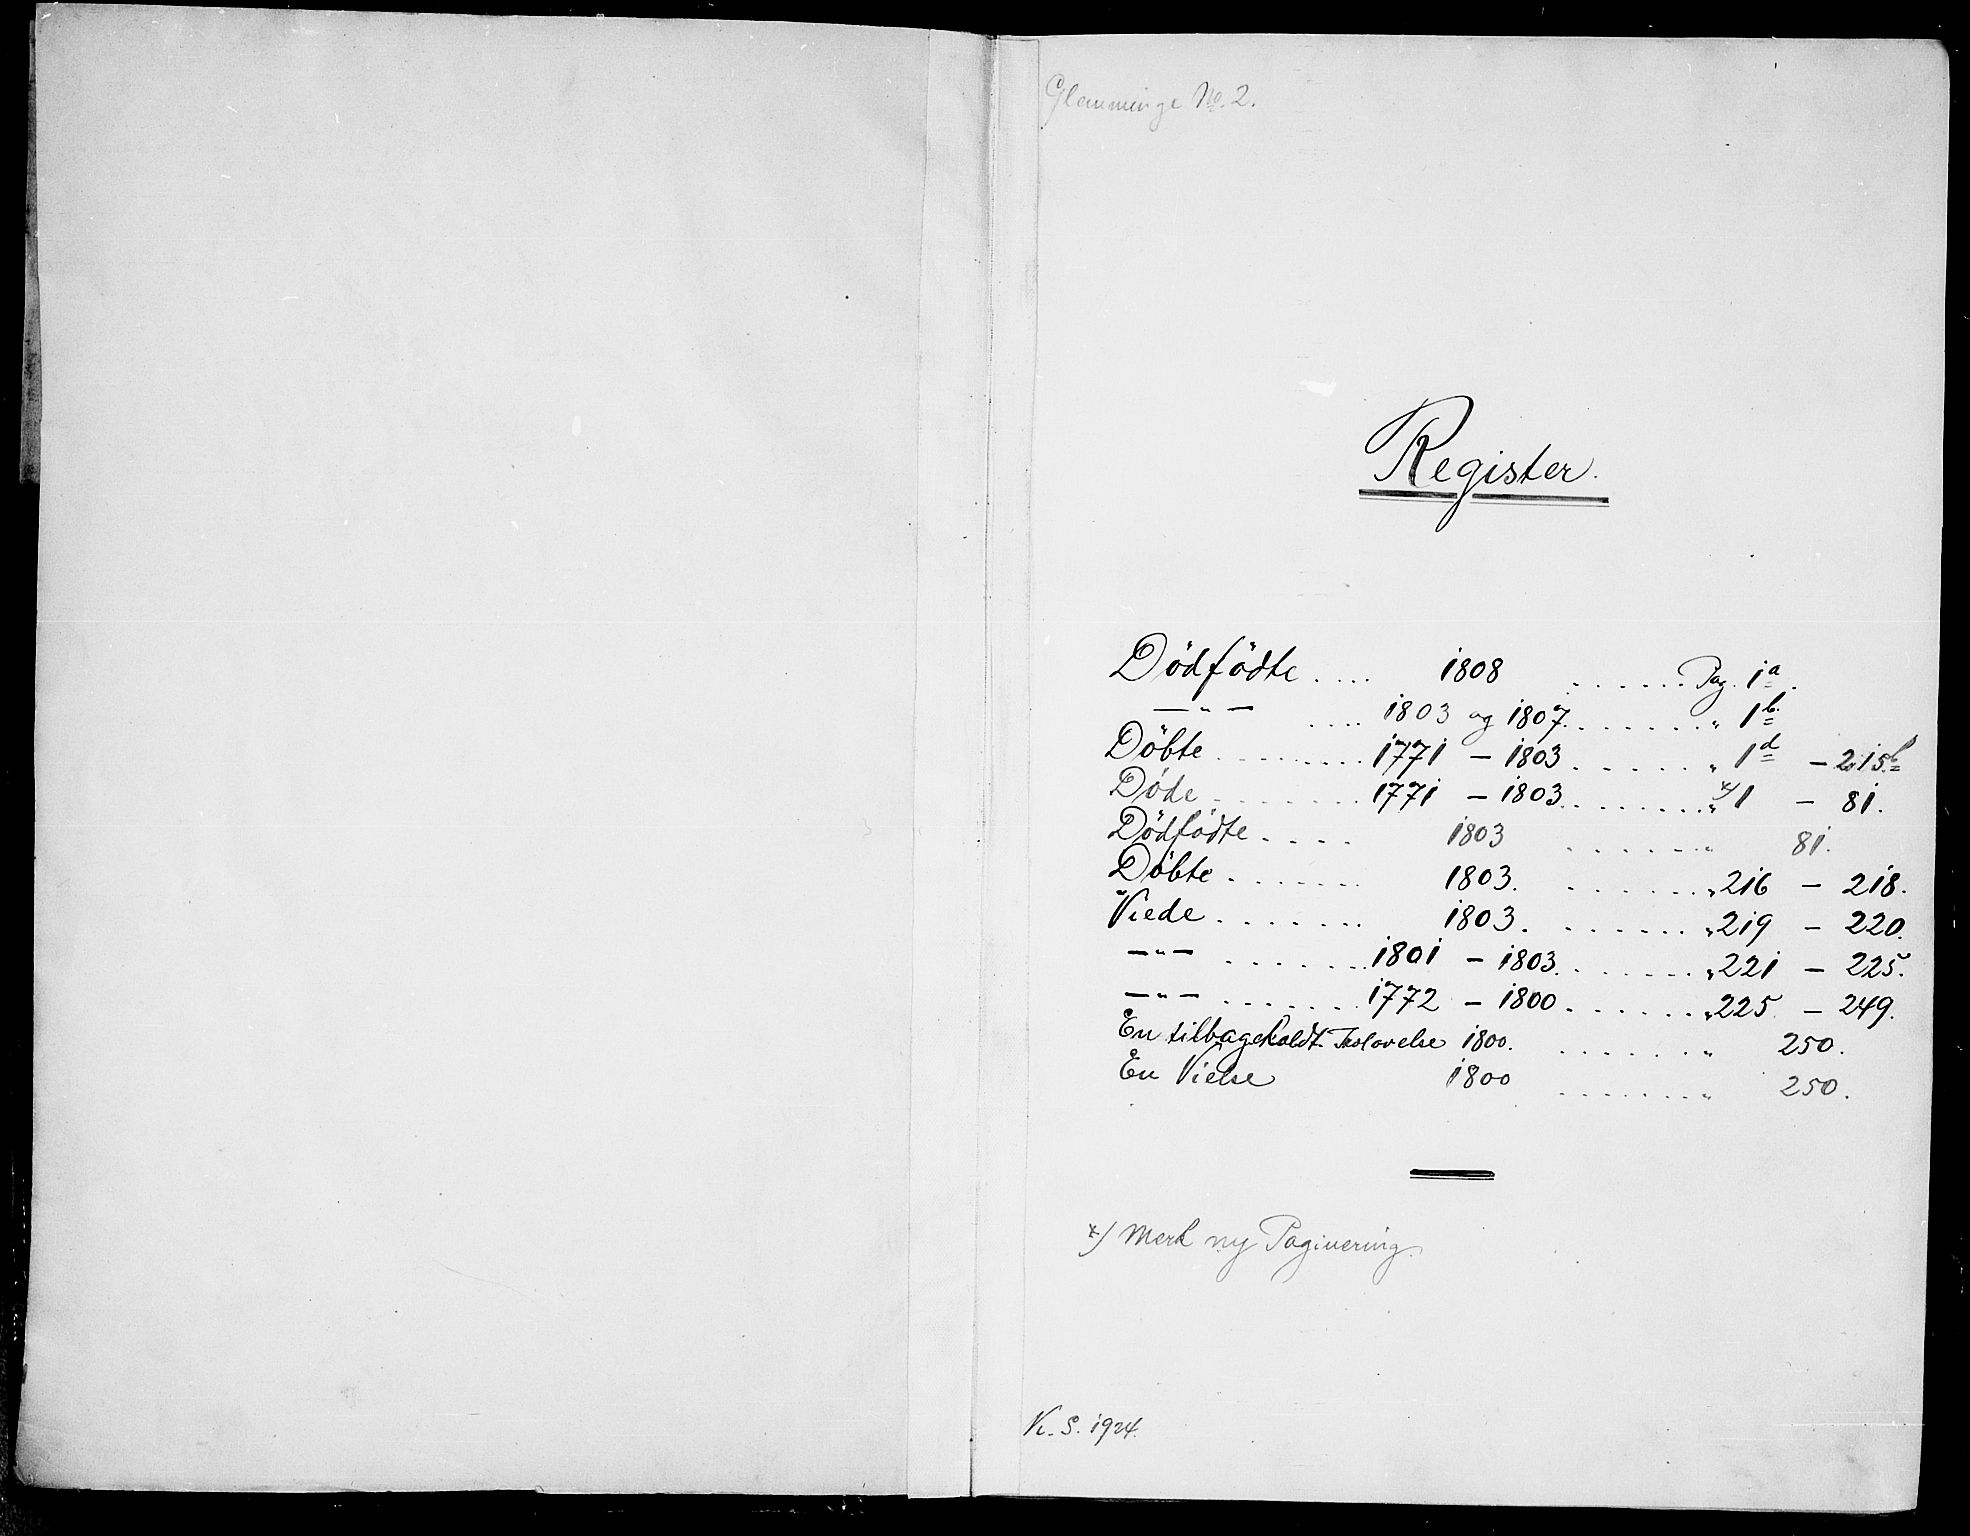 Glemminge No. 2.
Register.
Dödfödte .... 1808 ...... Pag. 1a.
—"— .... 1803 og 1807 ....... " 1b
Döbte ......... 1771 — 1803 ...... " 1d — 215b
Döde ........ 1771 — 1803 ........ " x) 1 — 81.
Dödfödte .... 1803 ....... " 81.
Döbte ....... 1803. ....... " 216 — 218.
Viede ....... 1803. ....... " 219 — 220.
—"— ....... 1801 — 1803 ....... " 221 — 225.
—"— ....... 1772 — 1800 ....... " 225 — 249.
En tilbageholdt Trolovelse 1800. ....... " 250.
En Vielse 1800 ....... " 250.
x) Merk ny Paginering.
K. S. 1924.